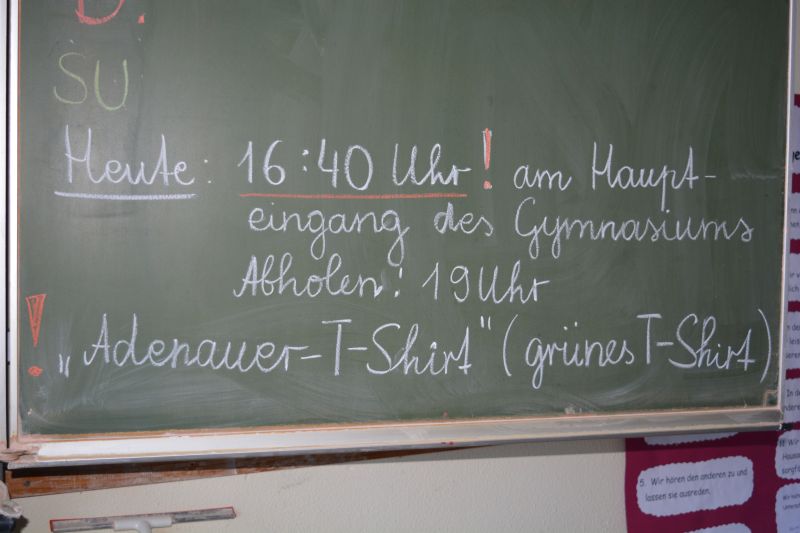 D.
SU
Heute: 16:40 Uhr! am Haupt-
eingang des Gymnasiums
Abholen: 19 Uhr
! „Adenauer-T-Shirt" (grünes T-Shirt)
5. Wir hören den anderen zu und
lassen sie ausreden.